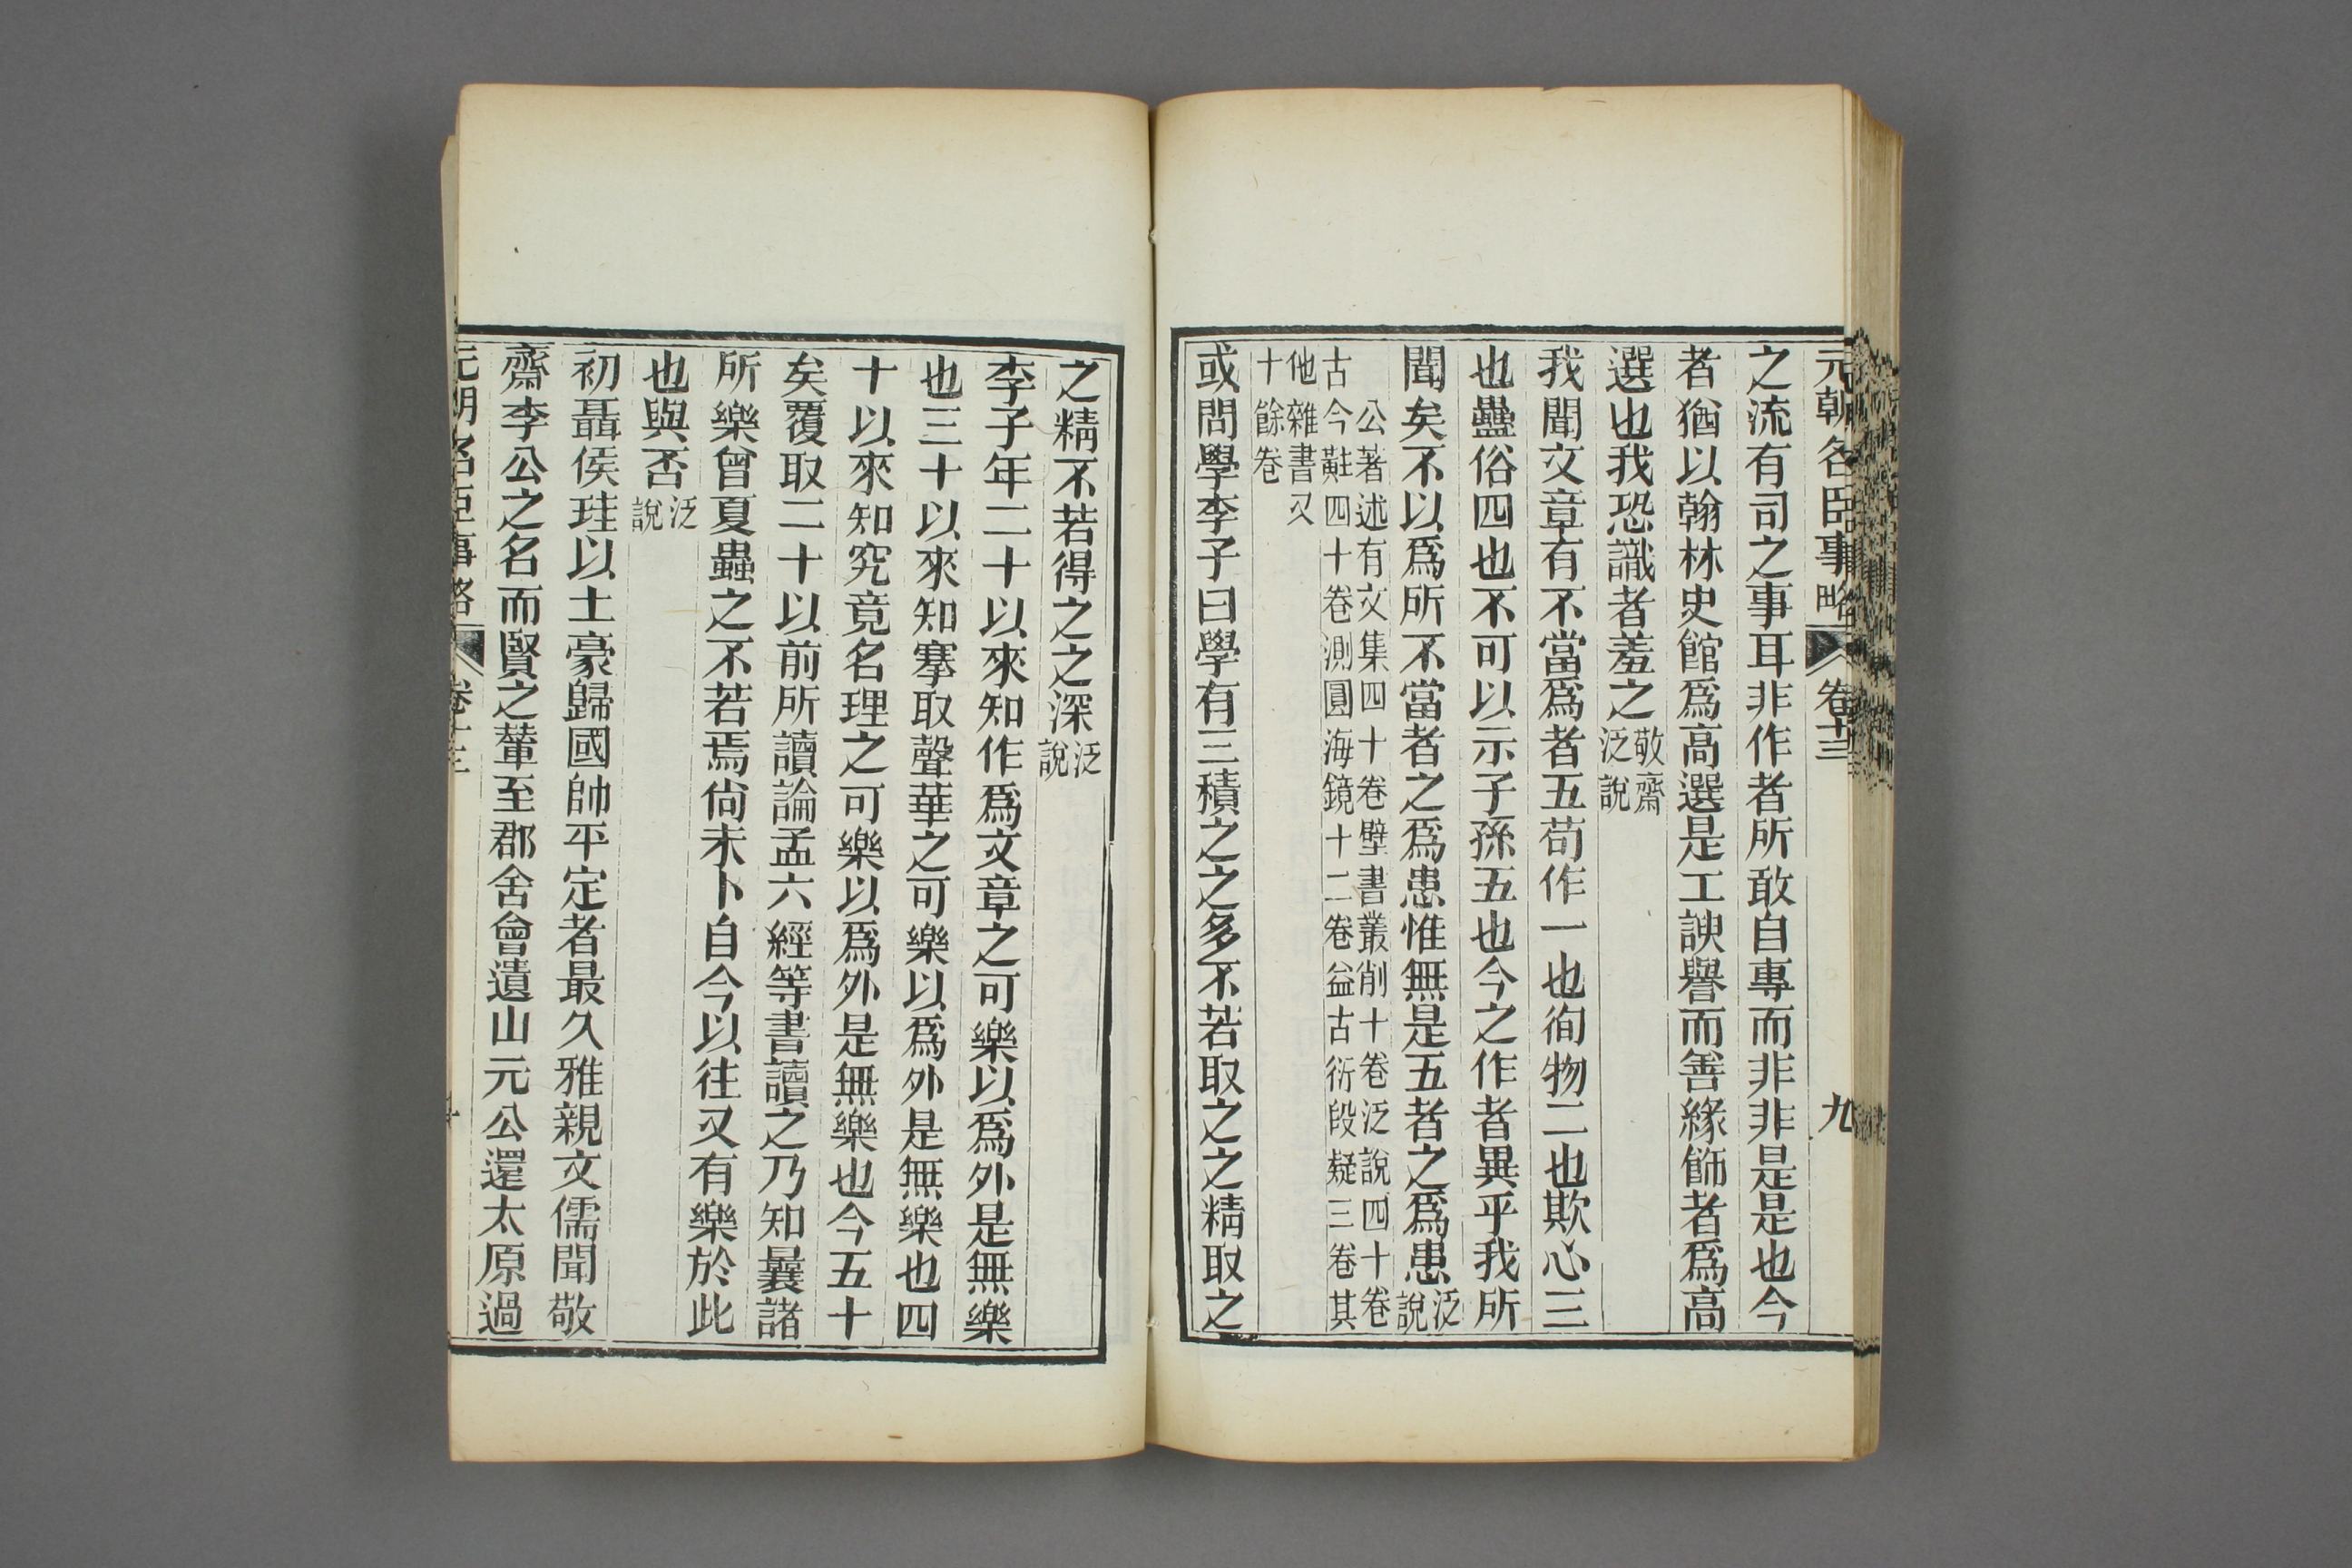 元朝名臣事略 卷十三 九
之流有司之事耳非作者所敢自專而非非是是也今
者猶以翰林史館爲高選是工諛譽而善緣飾者爲高
選也我恐識者羞之敬齋泛說
我聞文章有不當爲者五苟作一也徇物二也欺心三
也蠱俗四也不可以示子孫五也今之作者異乎我所
聞矣不以爲所不當者之爲患惟無是五者之爲患泛說
公著述有文集四十卷壁書叢削十卷泛說四十卷
古今黈四十卷測圓海鏡十二卷益古衍段疑三卷其
他雜書又
十餘卷
或問學李子曰學有三積之之多不若取之之精取之
之精不若得之之深泛說
李子年二十以來知作爲文章之可樂以爲外是無樂
也三十以來知搴取聲華之可樂以爲外是無樂也四
十以來知究竟名理之可樂以爲外是無樂也今五十
矣覆取二十以前所讀論孟六經等書讀之乃知曩諸
所樂曾夏蟲之不若焉尙未卜自今以往又有樂於此
也與否泛說
初聶侯珪以土豪歸國帥平定者最久雅親文儒聞敬
齋李公之名而賢之輦至郡舍會遺山元公還太原過
元朝名臣事略 卷十三 十